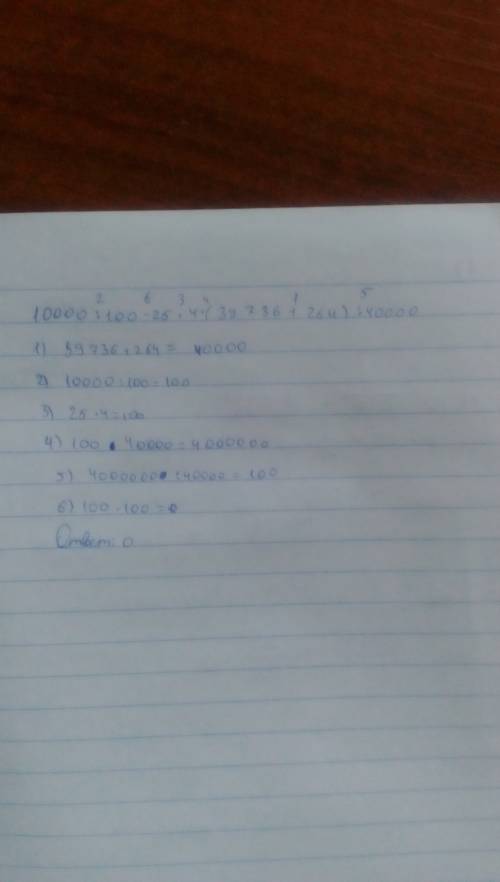 2 6 3 4 1 5
10000:100-25·4·(39736+264):40000
1) 39736+264= 40000
2) 10000:100=100
3) 25·4=100
4) 100·40000=4000000
5) 4000000:40000=100
6) 100-100=0
Ответ: 0